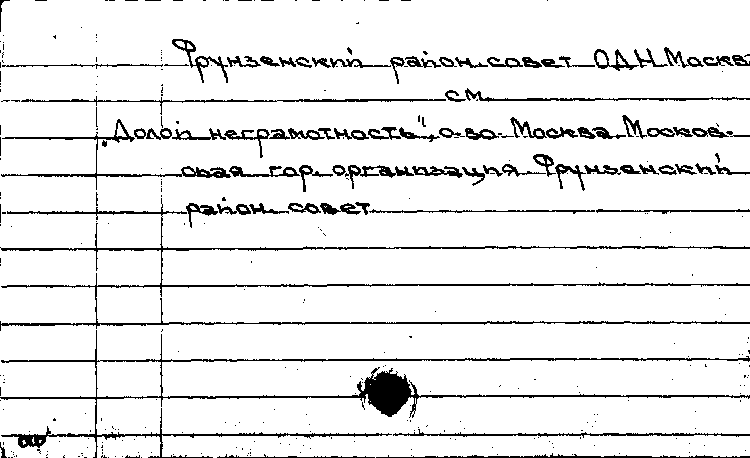 Фрунзенский район. совет ОДН Москва
см.
„Долой неграмотность", о-во. Москва. Москов-
ская гор. организация. Фрунзенский
район. совет.